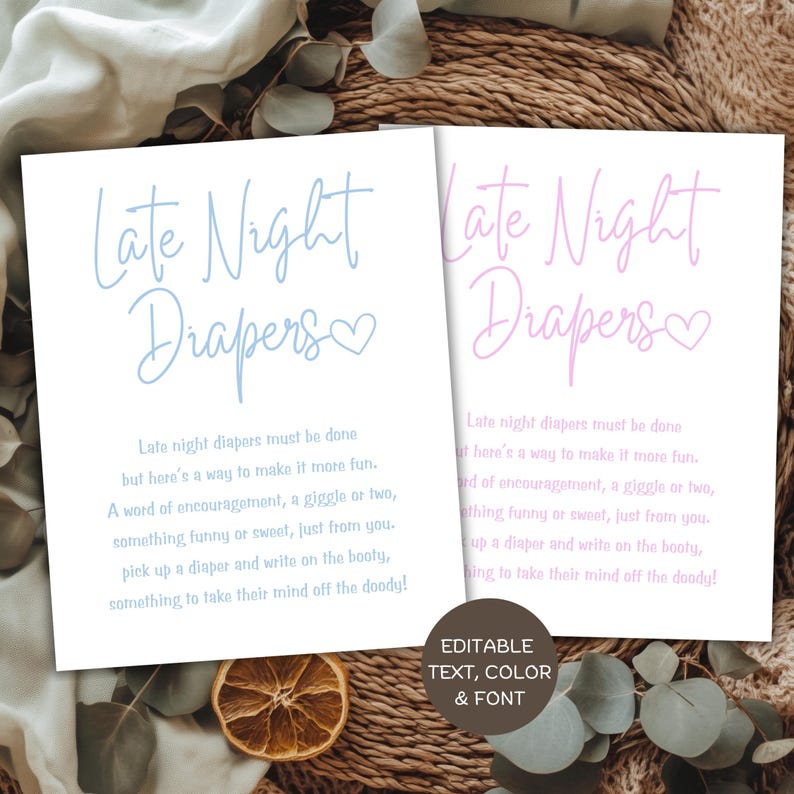 Late Night
Diapers
Late night diapers must be done
but here's a way to make it more fun.
A word of encouragement, a giggle or two,
something funny or sweet, just from you.
pick up a diaper and write on the booty,
something to take their mind off the doody!
Late Night
Diapers
Late night diapers must be done
but here's a way to make it more fun.
word of encouragement, a giggle or two,
something funny or sweet, just from you.
pick up a diaper and write on the booty,
something to take their mind off the doody!
EDITABLE
TEXT, COLOR
& FONT